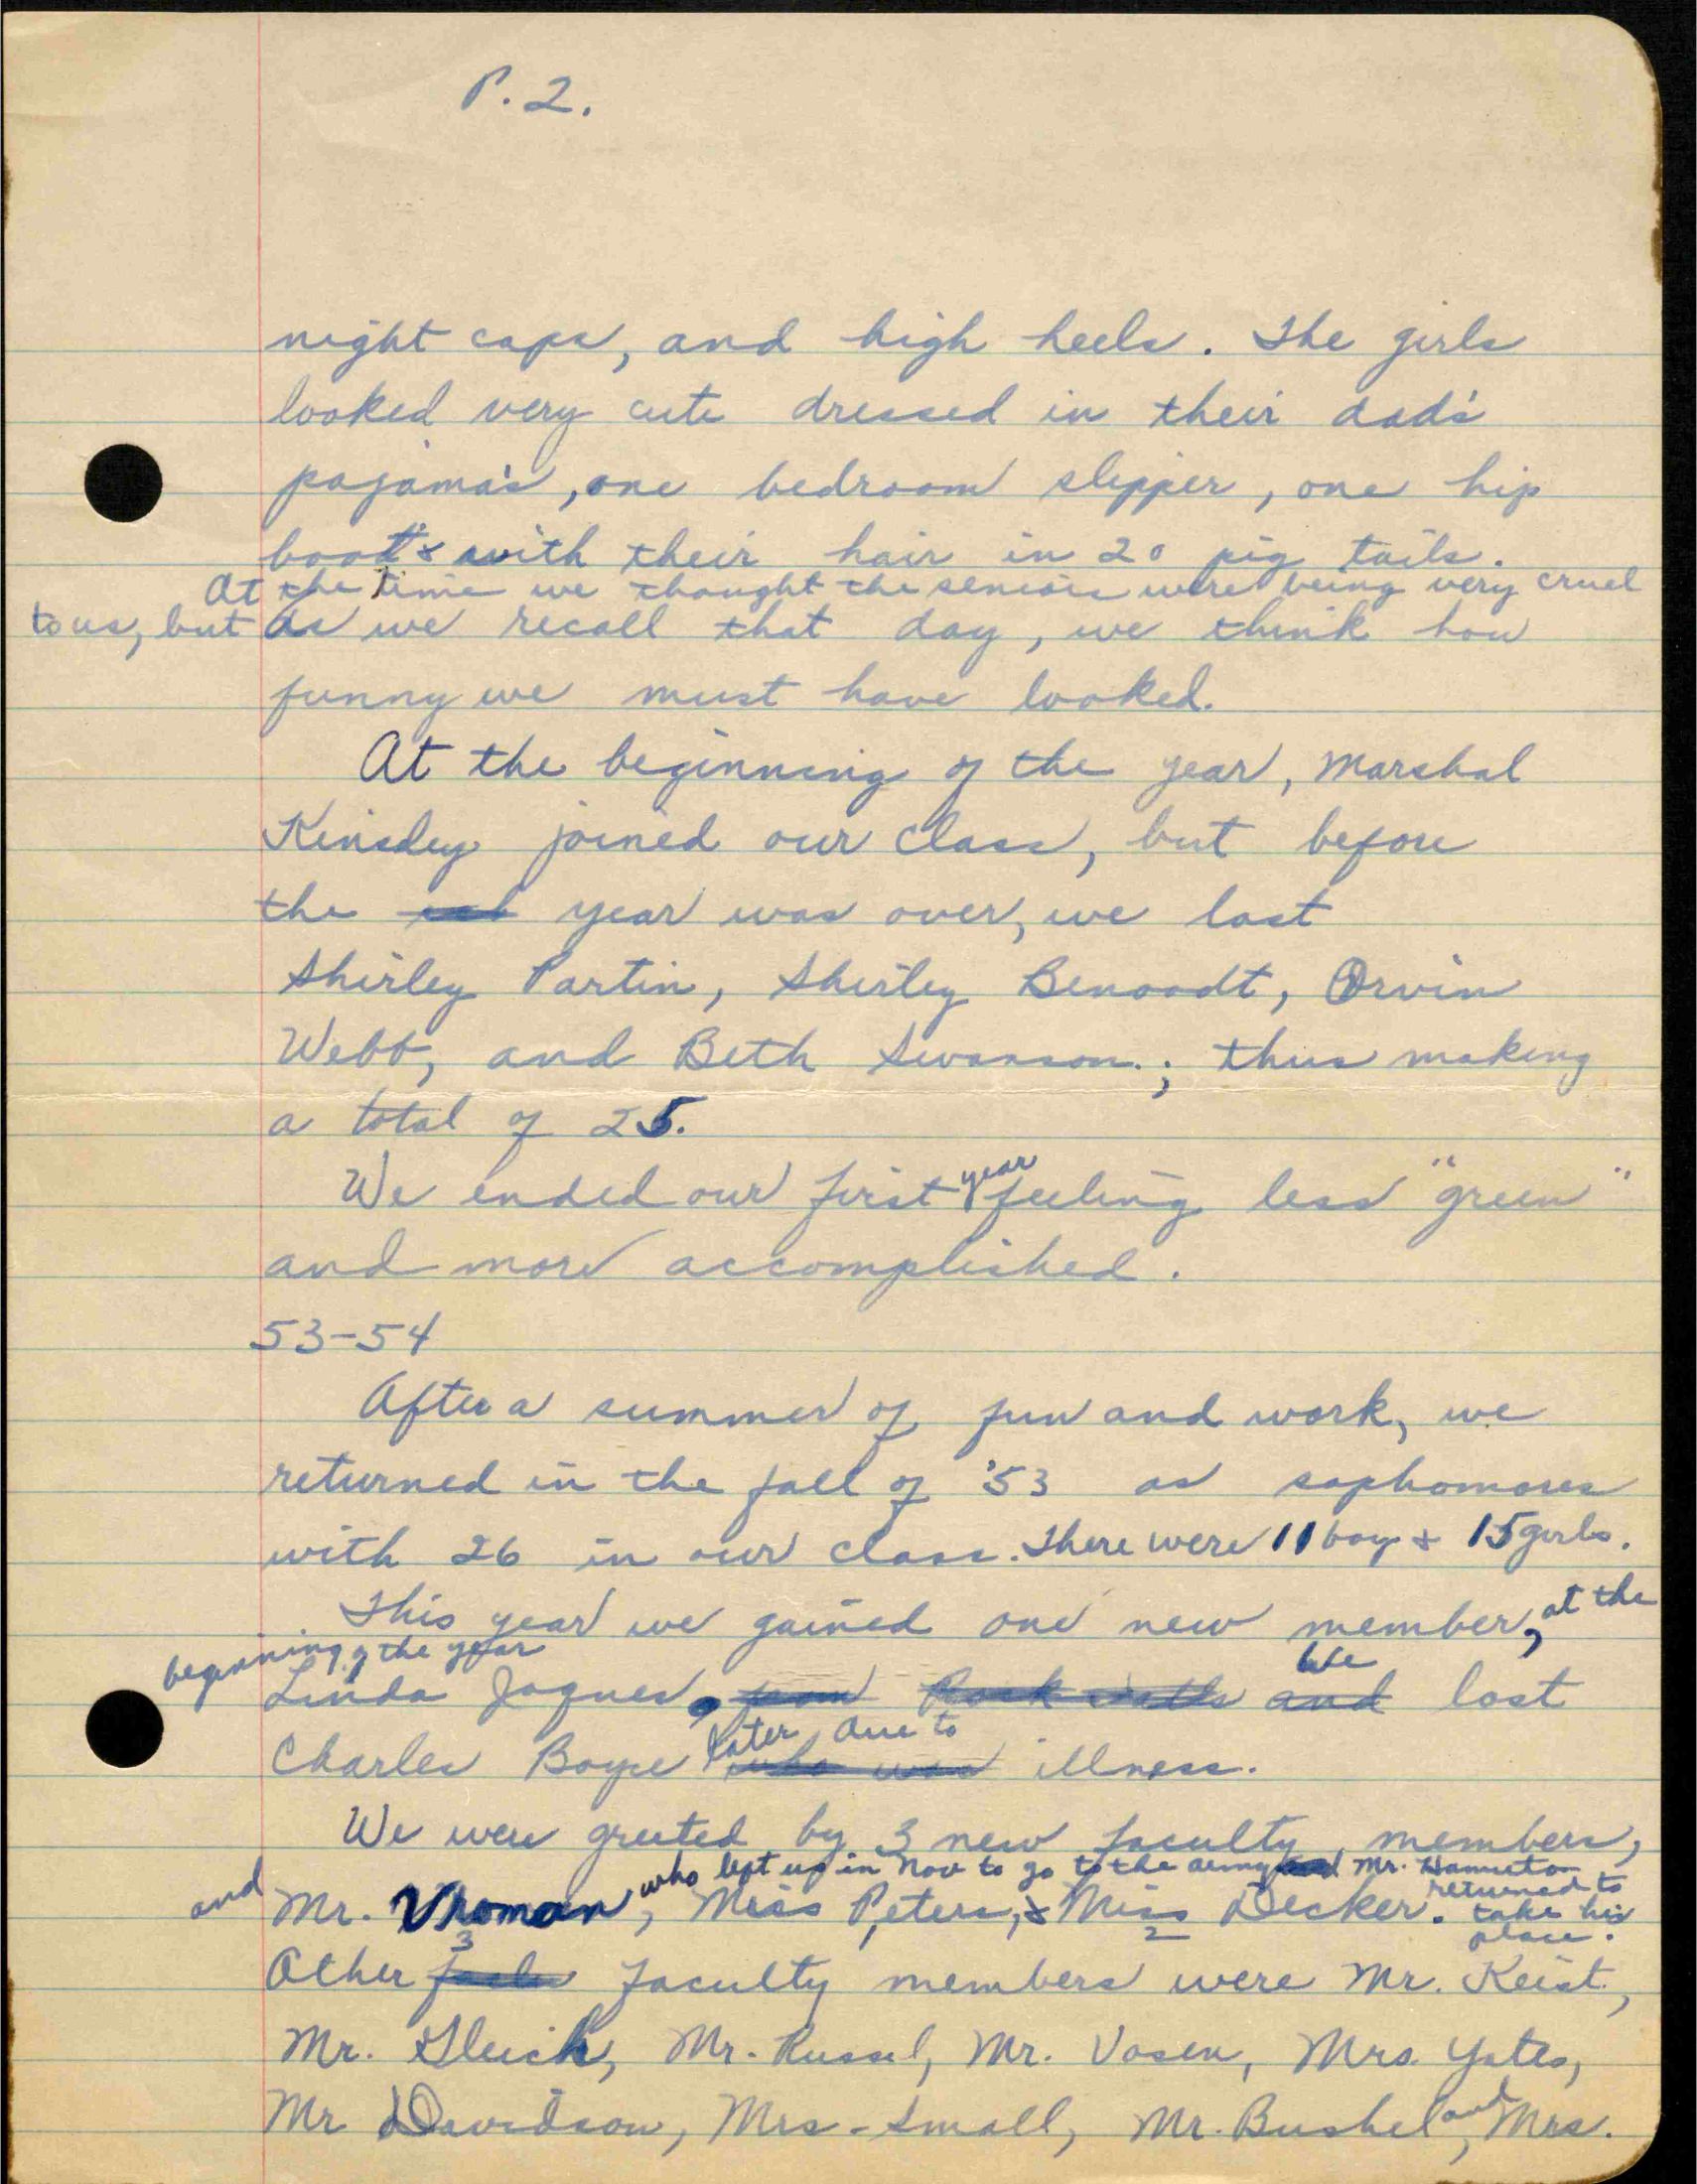 P. 2.
night caps, and high heels. The girls
looked very cute dressed in their dad's
pajama's, one bedroom slipper, one hip
boot & with their hair in 20 pig tails.
At the time we thought the seniors were being very cruel
to us, but as we recall that day, we think how
funny we must have looked.
At the beginning of the year, Marshal
Kinsley joined our class, but before
the year was over, we lost
Shirley Partin, Shirley Benoodt, Orvin
Webb, and Beth Swanson.; thus making
a total of 25.
We ended our first year feeling less "green"
and more accomplished.
53-54
After a summer of fun and work, we
returned in the fall of '53 as sophomores
with 26 in our class. There were 11 boys & 15 girls.
This year we gained one new member, at the
beginning of the year
Linda Jaques, from Rock Falls and We lost
Charles Boyse later due to who was illness.
We were greeted by 3 new faculty members,
who left us in Nov to go to the army and Mr. Hamilton
returned to take his place.
and Mr. Vroman, Miss Peters, & Miss Decker.
Other 3 faculty members were Mr. Keist,
Mr. Gleich, Mr. Russel, Mr. Vosen, Mrs. Yates,
Mr Davidson, Mrs. Small, Mr. Bushel, and Mrs.